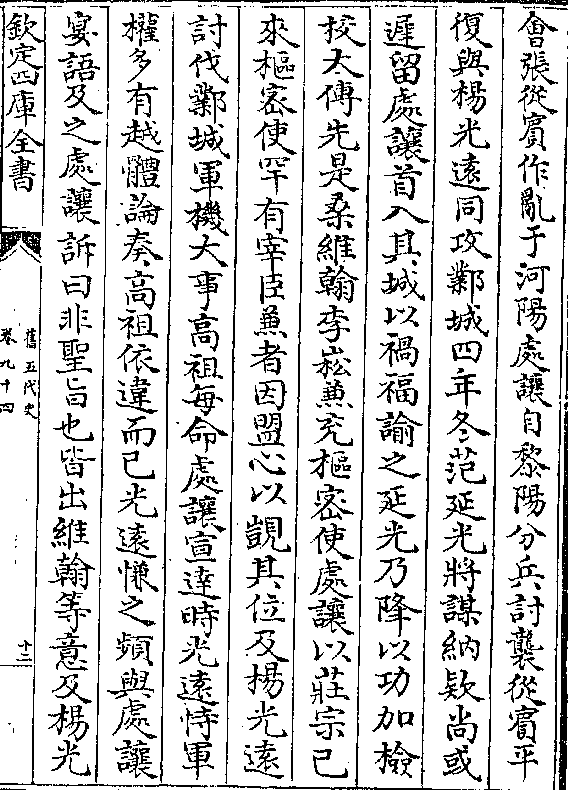 會張從賓作亂于河陽處讓自黎陽分兵討襲從賓平
復與楊光遠同攻鄴城四年冬范延光將謀納欵尚或
遲留處讓首入其城以禍福諭之延光乃降以功加檢
校太傅先是桑維翰李崧兼充樞密使處讓以莊宗已
來樞密使罕有宰臣兼者因盟心以覬其位及楊光遠
討伐鄴城軍機大事高祖每命處讓宣達時光遠恃軍
權多有越體論奏高祖依違而已光遠慊之頻與處讓
宴語及之處讓訴曰非聖旨也皆出維翰等意及楊光
欽定四庫全書
舊五代史
卷九十四
十二